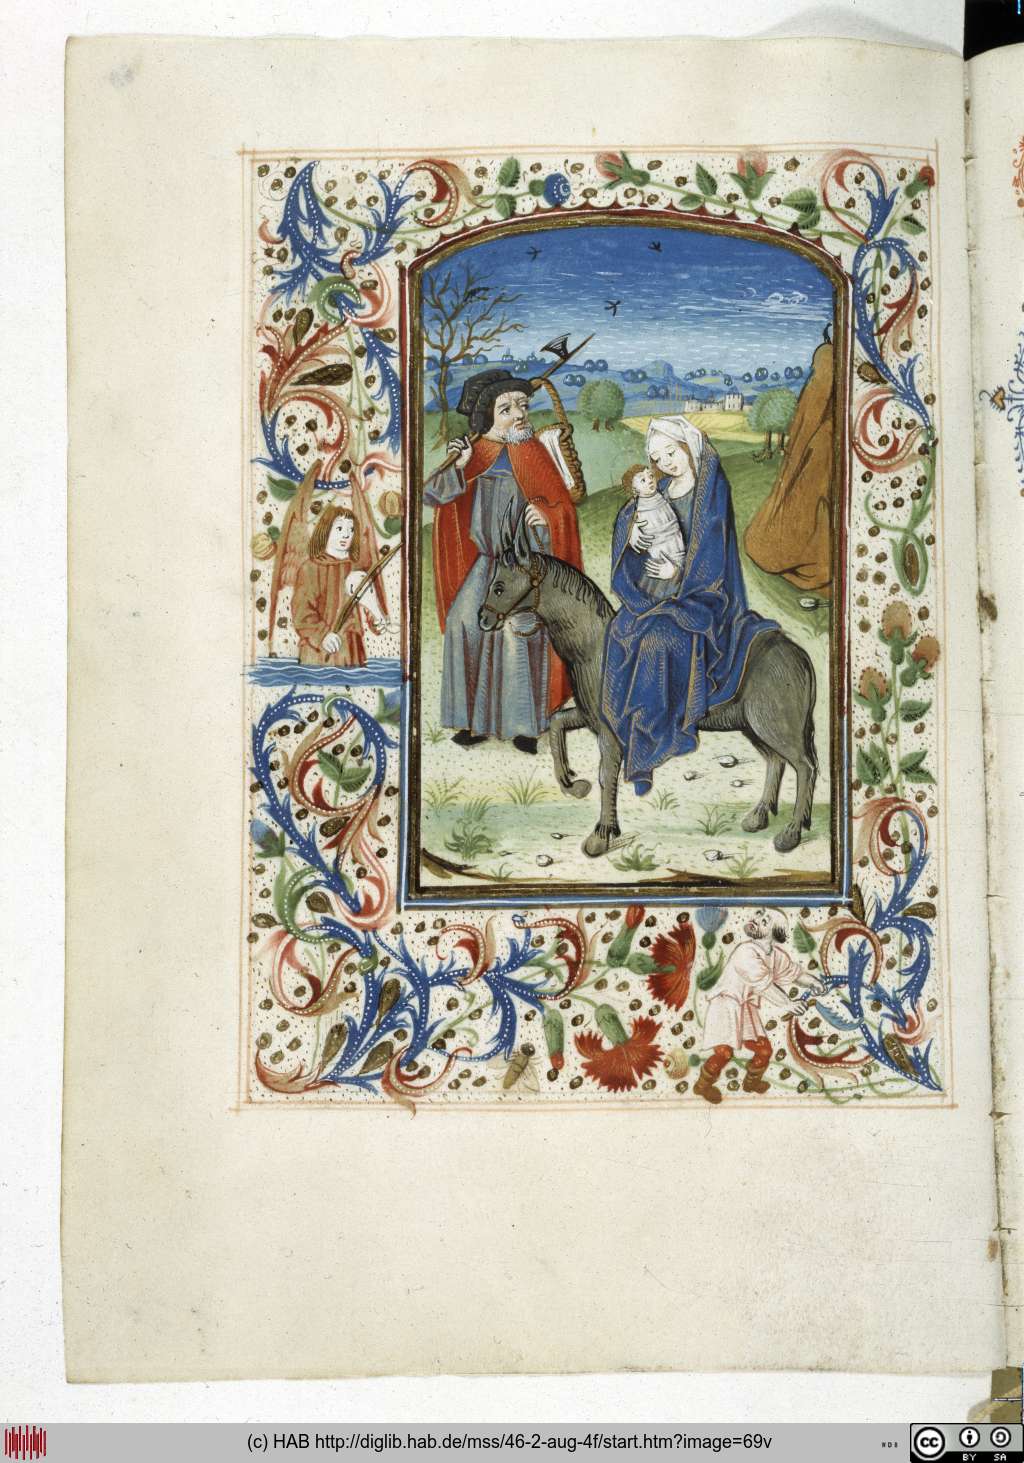 (c) HAB http://diglib.hab.de/mss/46-2-aug-4f/start.htm?image=69v
cc
BY SA